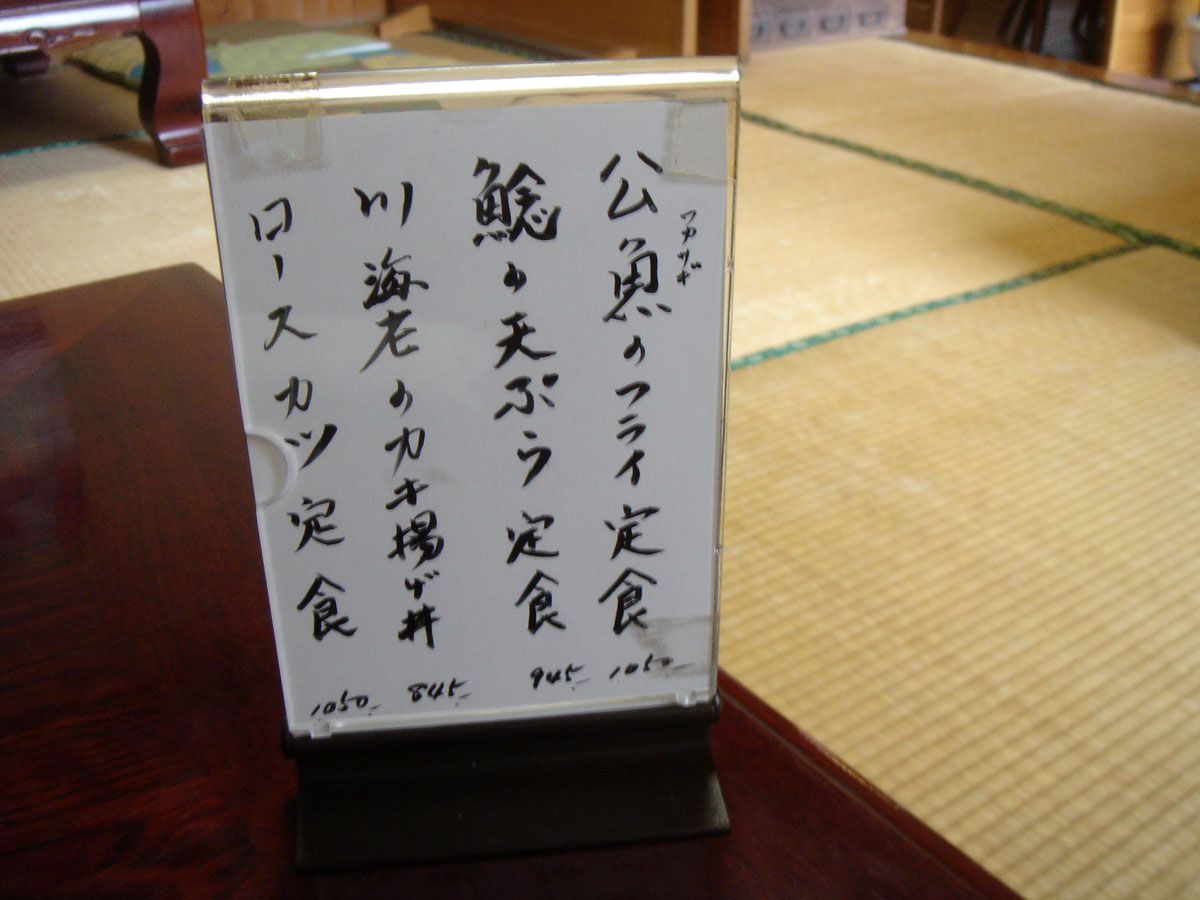 公魚のフライ定食 1050-
ワカサギ
鯰の天ぷら定食 945-
川海老のカキ揚げ丼 845-
ロースカツ定食 1050-